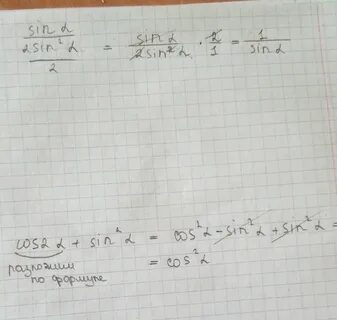 sin α / (2sin² α / 2) = sin α / 2sin² α · 2/1 = 1 / sin α
cos2 α + sin² α = cos² α - sin² α + sin² α =
разложим = cos² α
по формуле